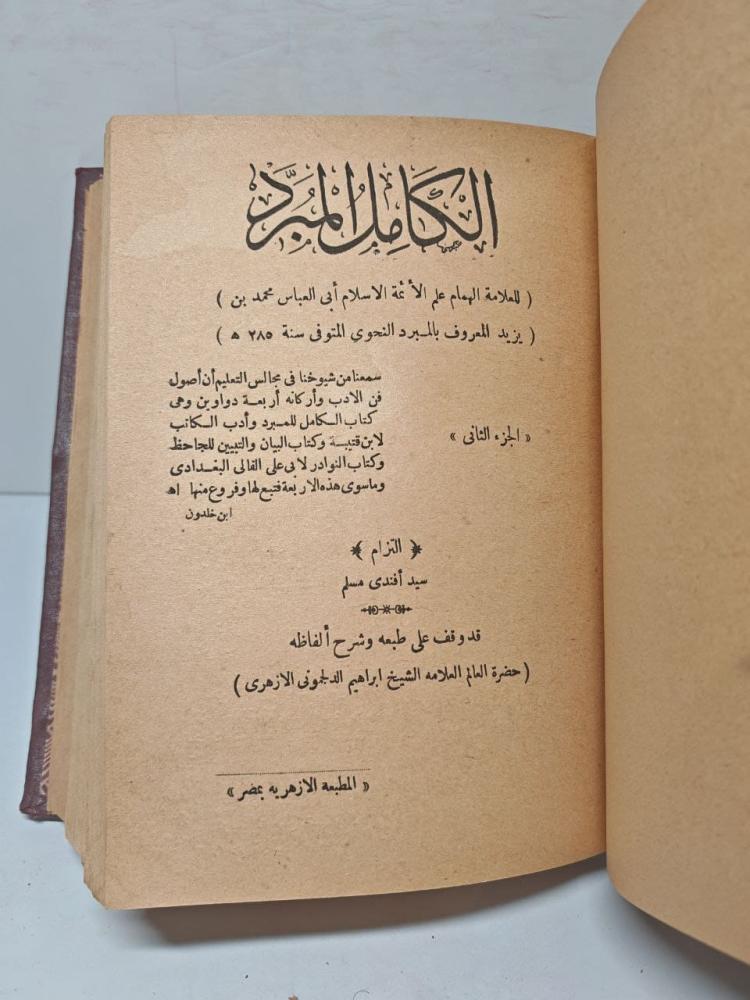 الْكَامِلُ الْمُبَرَّد
( للعلامة الهمام علم الأئمة الاسلام أبى العباس محمد بن )
( يزيد المعروف بالمبرد النحوي المتوفى سنة ٢٨٥ ه )
« الجزء الثانى »
سمعنا من شيوخنا فى مجالس التعليم أن أصول
فن الادب وأركانه أربعة دواوين وهى
كتاب الكامل للمبرد وأدب الكاتب
لابن قتيبة وكتاب البيان والتبيين للجاحظ
وكتاب النوادر لابى على القالى البغدادى
وماسوى هذه الاربعة فتبع لها وفروع منها اه
ابن خلدون
﴿ التزام ﴾
سيد أفندى مسلم
قد وقف على طبعه وشرح ألفاظه
( حضرة العالم العلامه الشيخ ابراهيم الدلجمونى الازهرى )
« المطبعة الازهريه بمضر »